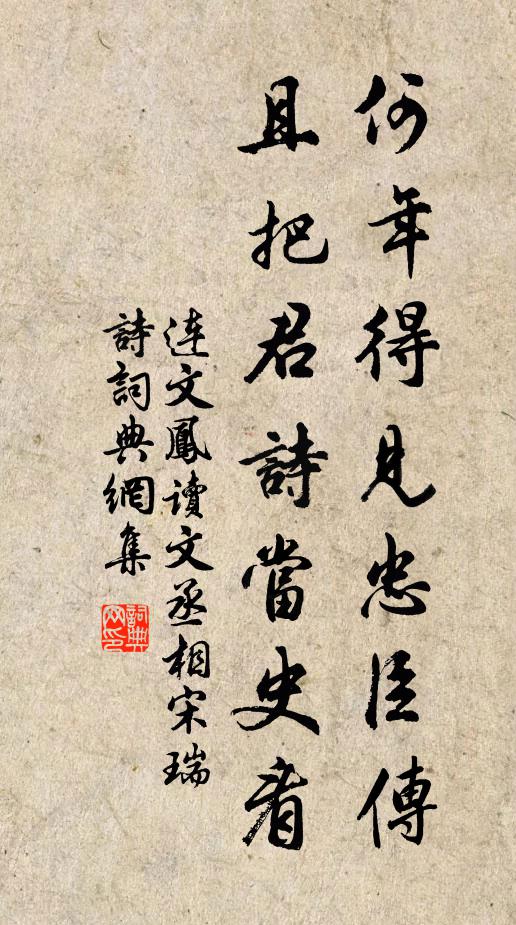 何年得見忠臣傳
且把君詩當史看
連文鳳讀文丞相宋瑞
詩詞典網集
詞典网印